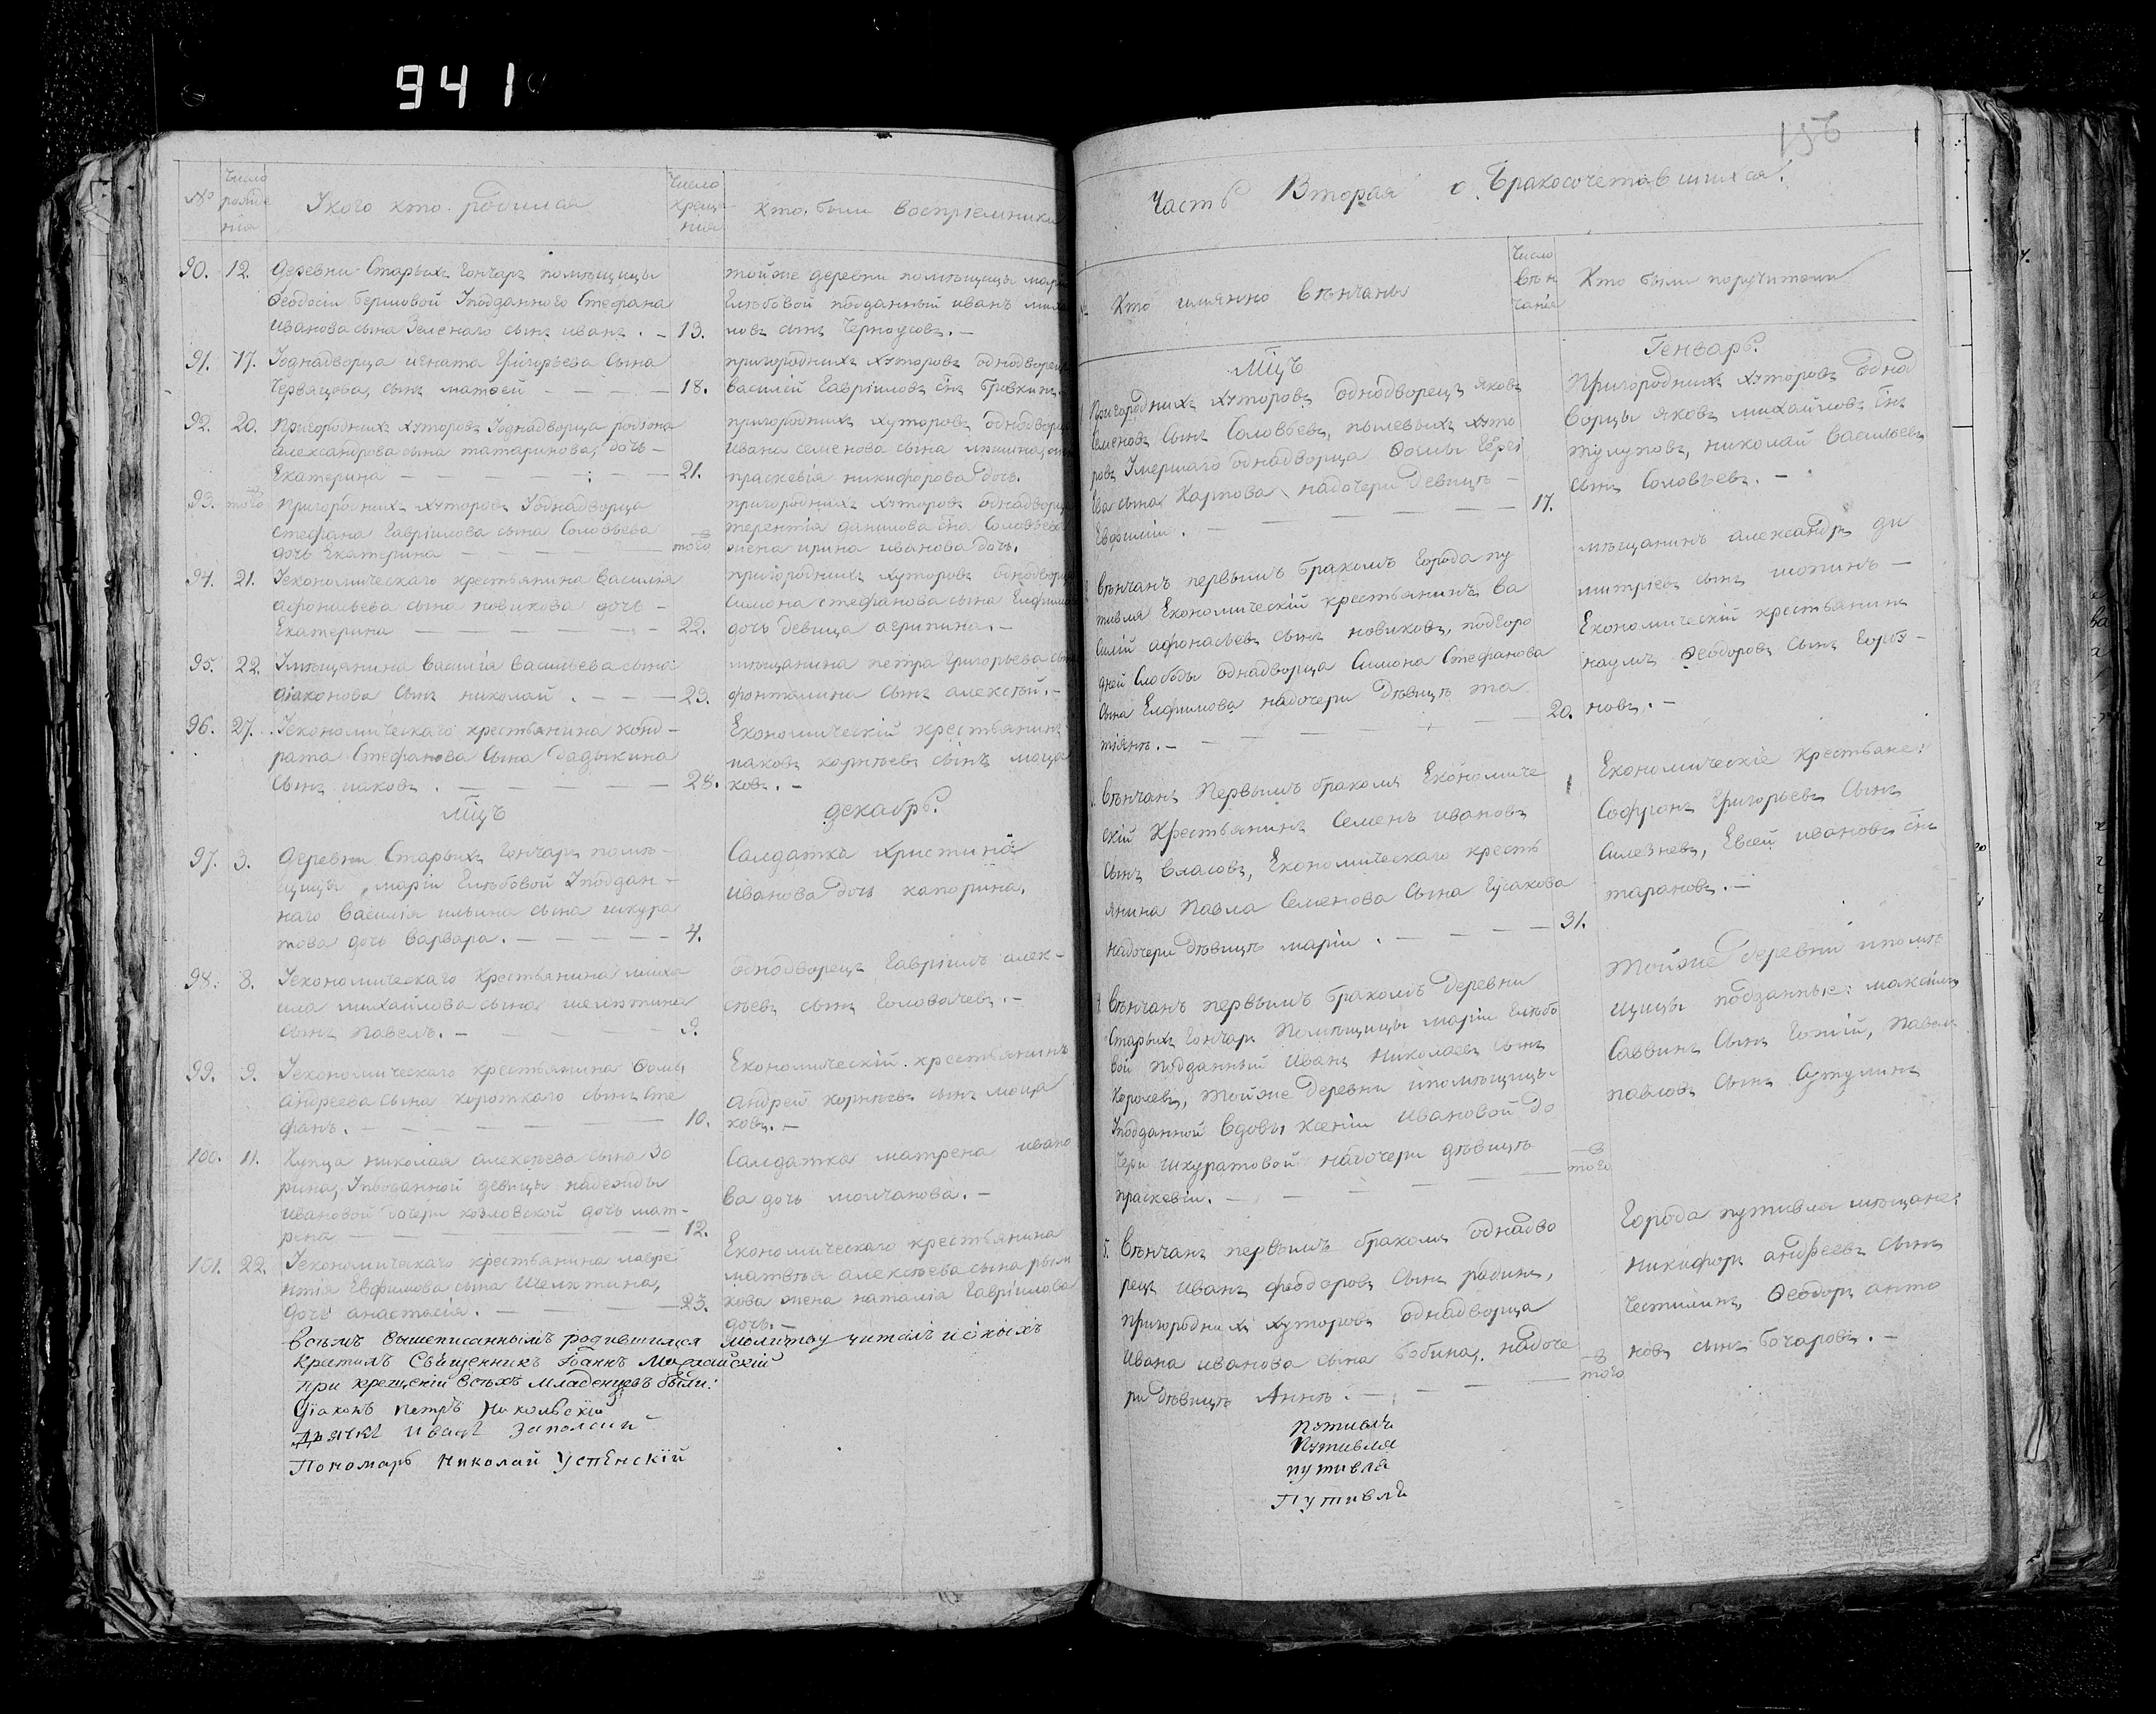 941
№
Число рожде нія
У кого кто родился
Число креще нія
Кто были воспріемники
90. 12. Деревни Старыхъ Гончаръ помѣщицы
Ѳеодосіи Ушодданного Стефана
Иванова сына Зеленаго сынъ иванъ. - 13.
тойже деревни помѣщицы марі
Глѣбовой подданный иванъ
новъ сынъ Черноусовъ. -
91. 17. Уоднадворца игната Григорьева сына
Червяцова, сынъ матѳей - 18.
пригородныхъ хуторовъ однодворецъ
василій Гавріиловъ снъ
92. 20. Пригородныхъ хуторовъ Уоднадворца родіона
александрова сына татаринова, дочь -
Екатерина - 21.
пригородныхъ хуторовъ однодворца
Ивана семенова сына
праскевія никифорова дочь.
93. того пригородныхъ хуторовъ Уоднадворца
стефана Гавріилова сына Соловьева
дочь Екатерина - того
пригородныхъ хуторовъ однадворца
терентія данилова сна Соловьева
жена ирина иванова дочь.
94. 21. Уекономическаго крестьянина василія
афонасьева сына новикова дочь -
Екатерина - 22.
пригородныхъ хуторовъ однодворца
Симона стефанова сына
дочь девица агрипина. -
95. 22. Умѣщанина василія васильева сына
діаконова сынъ николай. - 23.
мѣщанина петра григорьева сына
фонталина сынъ алексѣй. -
96. 27. Уекономическаго крестьянина конд-
рата Стефанова сына дадыкина
сынъ иаковъ. - 28.
Економическій крестьянинъ
иаковъ корнѣевъ сынъ моца
ковъ. -
мцъ декабрь.
97. 3. Деревни Старыхъ Гончаръ помѣ-
щицы маріи Глѣбовой Уподдан-
наго василія ильина сына шкура
това дочь варвара. - 4.
Салдатка христина
иванова дочь капорина.
98. 8. Уекономическаго крестьянина миха
ила михайлова сына шелѣхтина
сынъ павелъ. - 9.
однодворецъ Гавріилъ алек-
сѣевъ сынъ Головачевъ. -
99. 9. Уекономическаго крестьянина Ѳомы
андреева сына короткаго сынъ сте
фанъ. - 10.
Економическій крестьянинъ
Андрей корнѣевъ сынъ моца
ковъ. -
100. 11. Купца николая алексѣева сына Зо
рина, Уподданной девицы надежды
ивановой дочери козловской дочь мат-
рена - 12.
Салдатка матрена ивано
ва дочь молчанова. -
101. 22. Уекономическаго крестьянина лаврен
нтія Евфимова сына Шелѣхтина,
дочь анастасія. - 23.
Економическаго крестьянина
матвѣя алексѣева сына рыли
кова жена наталія Гавріилова
дочь. -
всѣмъ вышеписаннымъ родившимся молитву читалъ и оныхъ
крестилъ Священникъ Іоаннъ
При крещеніи всѣхъ младенцевъ были:
Діаконъ Петръ Никольскій
Дьячкъ Иванъ Заполскій
Пономарь Николай Успенскій
156
Часть Вторая о Бракосочетавшихся.
Кто имянно вѣнчаны
Число вѣн чанія
Кто были поручители
Мцъ Генварь.
Пригородныхъ хуторовъ однодворецъ яковъ
Семеновъ Сынъ Соловьевъ, пылевыхъ хуто
ровъ Умершаго однадворца Ѳомы Сергі
ева сына Карпова надочери девицѣ -
Евфиміи. - 17.
Пригородныхъ хуторовъ однод
ворцы яковъ михайловъ снъ
тулуповъ, николай васильевъ
сынъ Соловьевъ. -
Вѣнчанъ первымъ бракомъ Города пу
тивля Економическій крестьянинъ ва
силій афонасьевъ сынъ новиковъ, подгоро
дней слободы однадворца Симона Стефанова
сына Елфимова надочери Дѣвицѣ та
тіянѣ. - 20.
мѣщанинъ александръ ди
митріевъ сынъ шопинъ -
Економическій крестьянинъ
наумъ Ѳеодоровъ сынъ
новъ. -
Вѣнчанъ Первымъ бракомъ Економиче
скій Крестьянинъ Семенъ ивановъ
сынъ власовъ, Економическаго кресть
янина Павла Семенова Сына Гусакова
надочери дѣвицѣ маріи. - 31.
Економическіе крестьяне:
Софронъ Григорьевъ Сынъ
Силезневъ, Евсей ивановъ снъ
тарановъ. -
Вѣнчанъ первымъ бракомъ Деревни
Старыхъ Гончаръ Помѣщицы маріи Глѣбо
вой подданный иванъ николаевъ сынъ
Королевъ, тойже деревни ипомѣщицы
Уподданной вдовы ксеніи ивановой до
чери шкуратовой надочери дѣвицѣ
праскевіи. - того
Тойже деревни ипомѣ
щицы подданные: максимъ
Саввинъ Сынъ павелъ
павловъ Сынъ Сутулинъ
5. Вѣнчанъ первымъ бракомъ однадво
рецъ иванъ феодоровъ Сынъ рабинъ,
пригородныхъ хуторовъ однадворца
ивана иванова сына бобина, надоче
ри дѣвицѣ Аннѣ. - того
Города путивля мѣщане:
никифоръ андреевъ сынъ
Честилинъ, Ѳеодоръ анто
новъ сынъ бочаровъ. -
Путивль
Путивля
путивля
Путивль